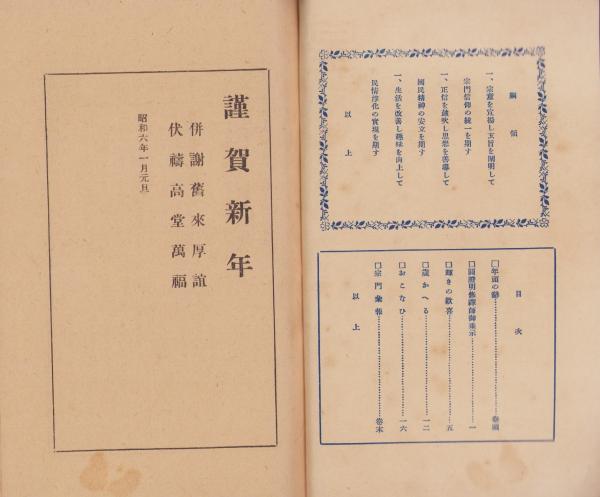 綱領
一、宗意を宣揚し玄旨を闡明して
宗門信仰の統一を期す
一、正信を鼓吹し思想を善導して
國民精神の安立を期す
一、生活を改善し趣味を向上して
民情淳化の實現を期す
以上
目次
□年頭の辭……卷頭
□圓證明修禪師御垂示……一
□輝きの歡喜……五
□歳かへる……一二
□おこなひ……一六
□宗門彙報……卷末
以上
謹賀新年
併謝舊來厚誼
伏禱高堂萬福
昭和六年一月元旦